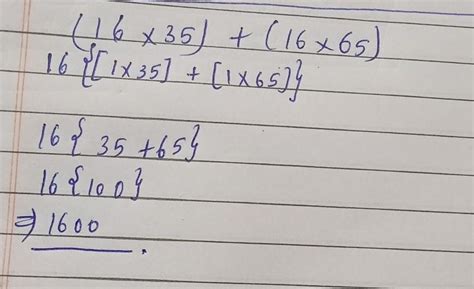 (16 × 35) + (16 × 65)
16 {[1×35] + [1×65]}
16 { 35 + 65}
16 {100}
⇒ 1600 .